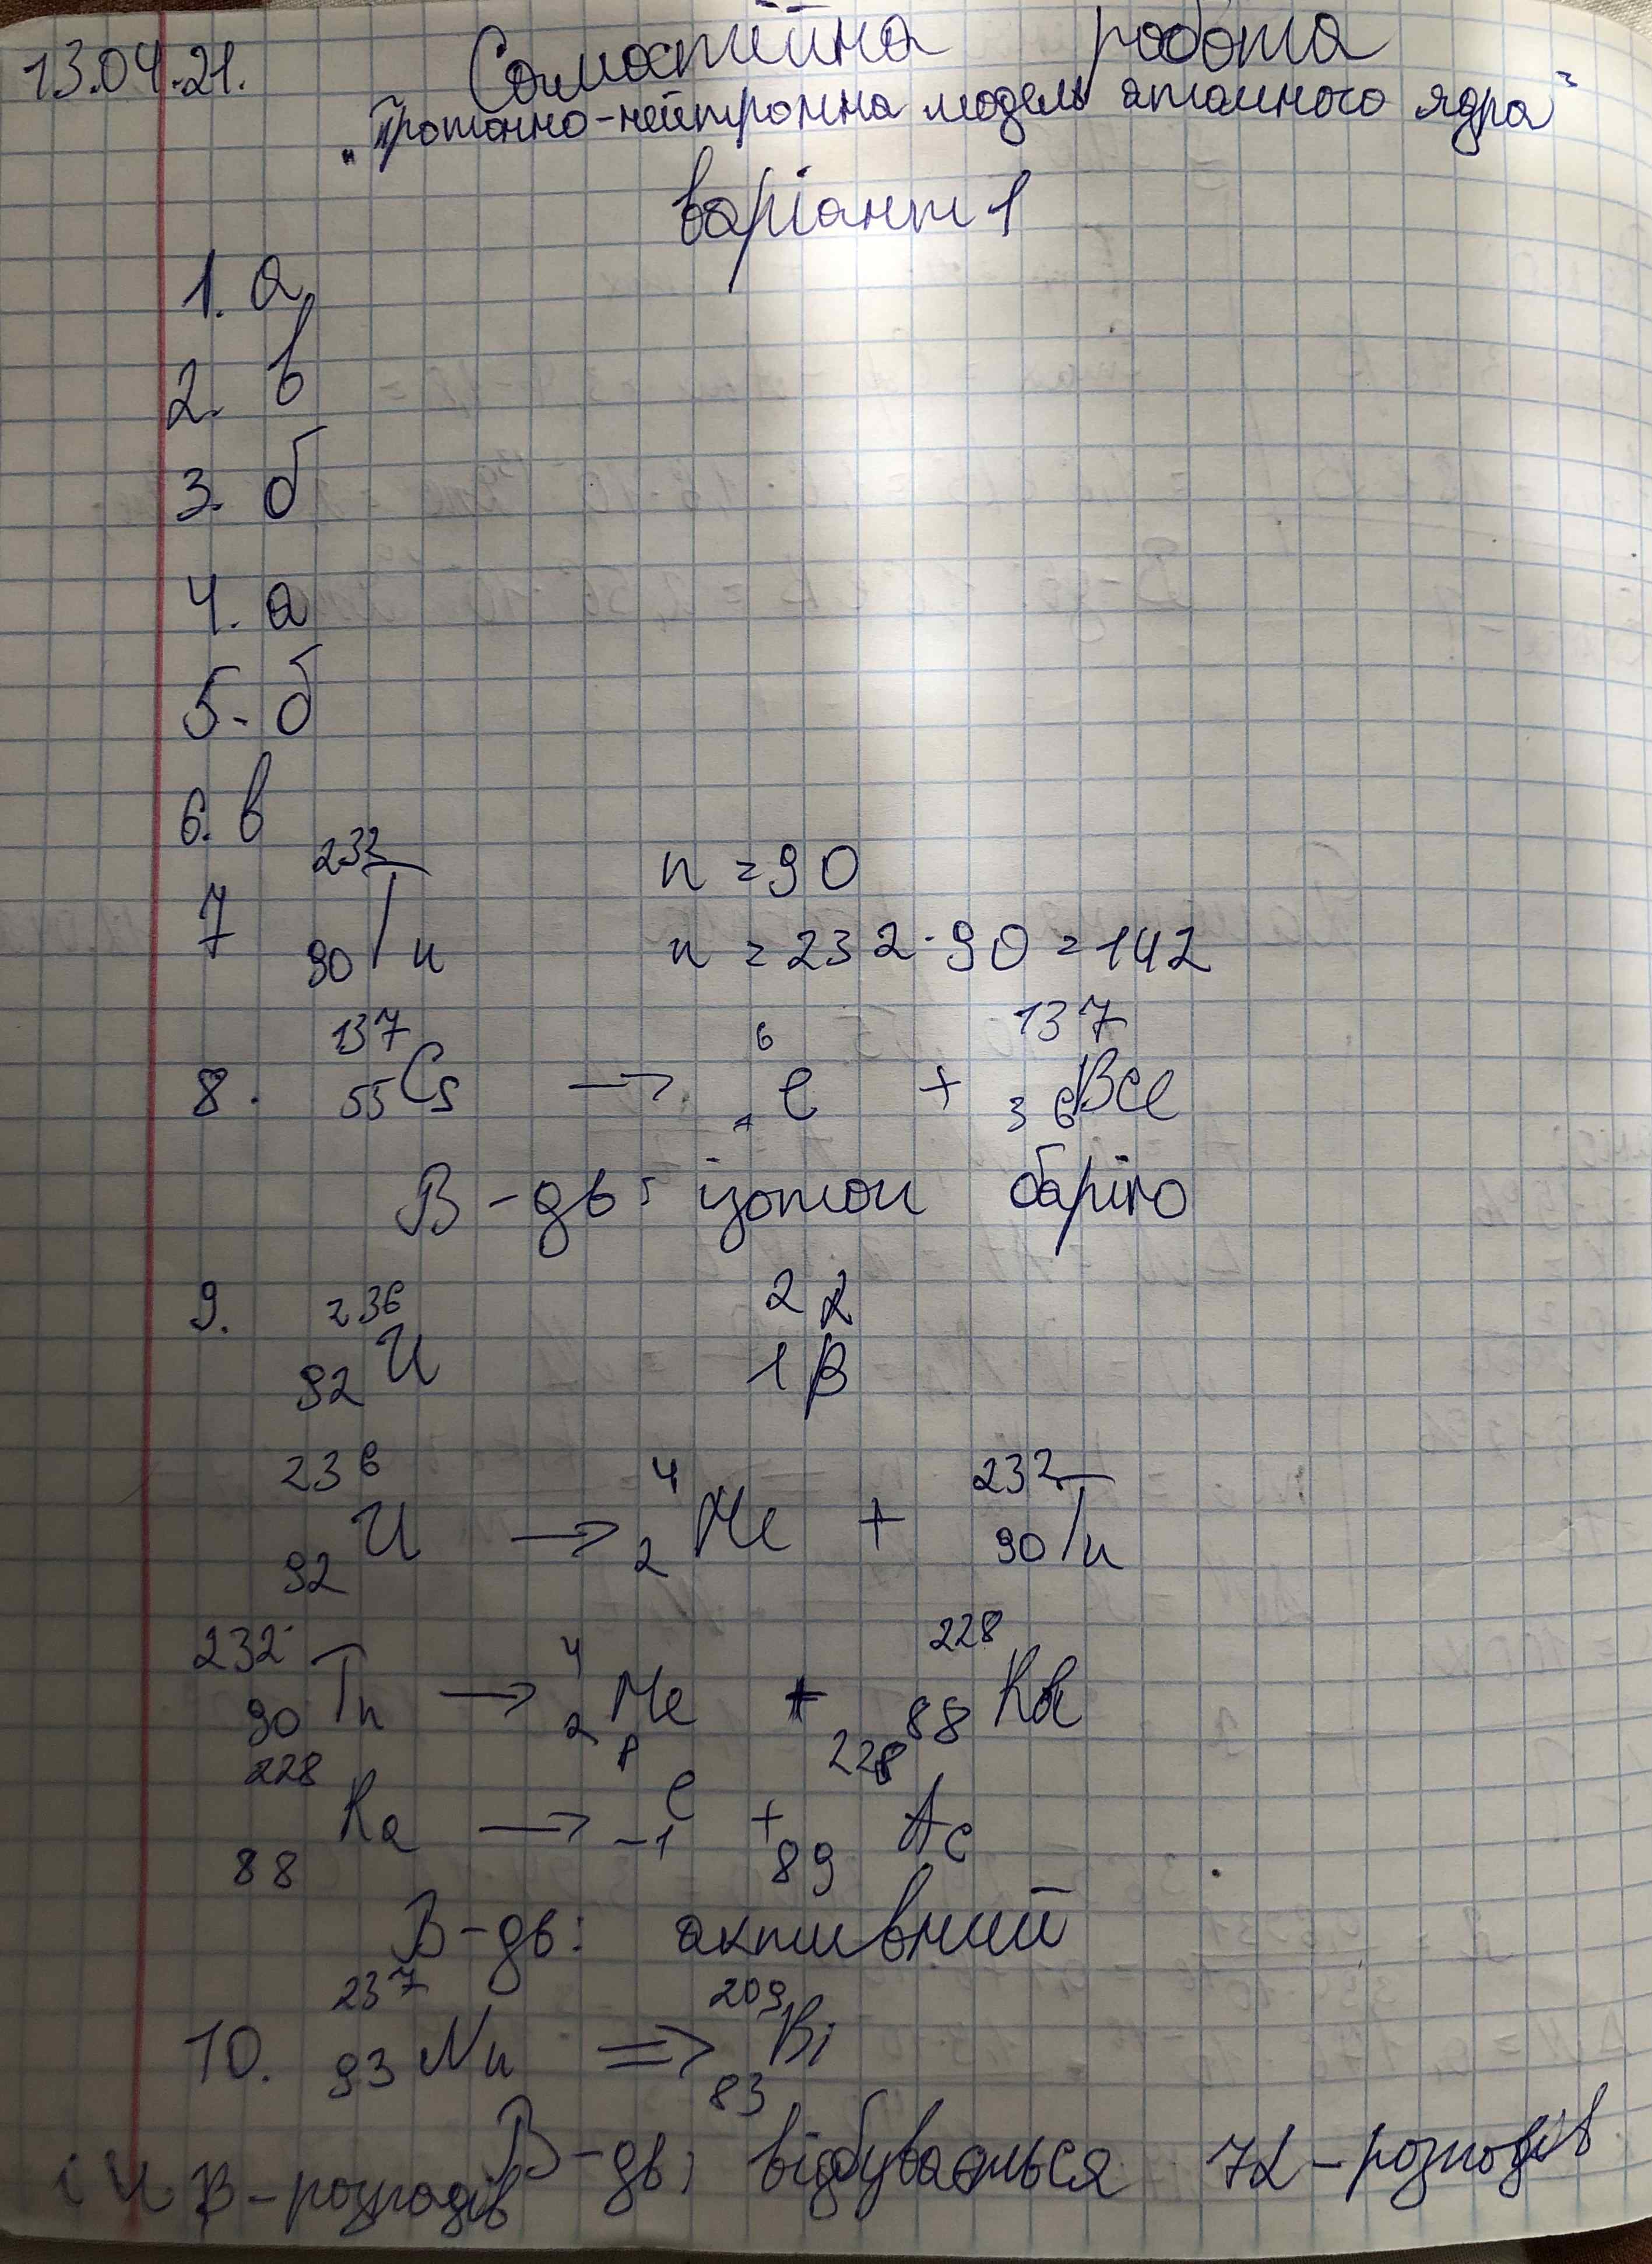 13.04.21.
Самостійна робота
"Протонно-нейтронна модель атомного ядра"
Варіант 1
1. а
2. в
3. б
4. а
5. б
6. в
7 ²³²₉₀Th n = 90
n = 232-90 = 142
8. ¹³⁷₅₅Cs → e + ¹³⁷
В-дь: ізотоп барію
9. ²³⁶₉₂U 2α
1β
²³⁶₉₂U → ⁴₂He + ²³²₉₀Th
²³²₉₀Th → ⁴₂He + ²²⁸₈₈Ra
²²⁸₈₈Ra → ₋₁e + ²²⁸₈₉Ac
В-дь: активний
10. ²³⁷₉₃Np ⇒ ²⁰⁹₈₃Bi
В-дь: відбувається 7α-розподів
і 4 β-розподів